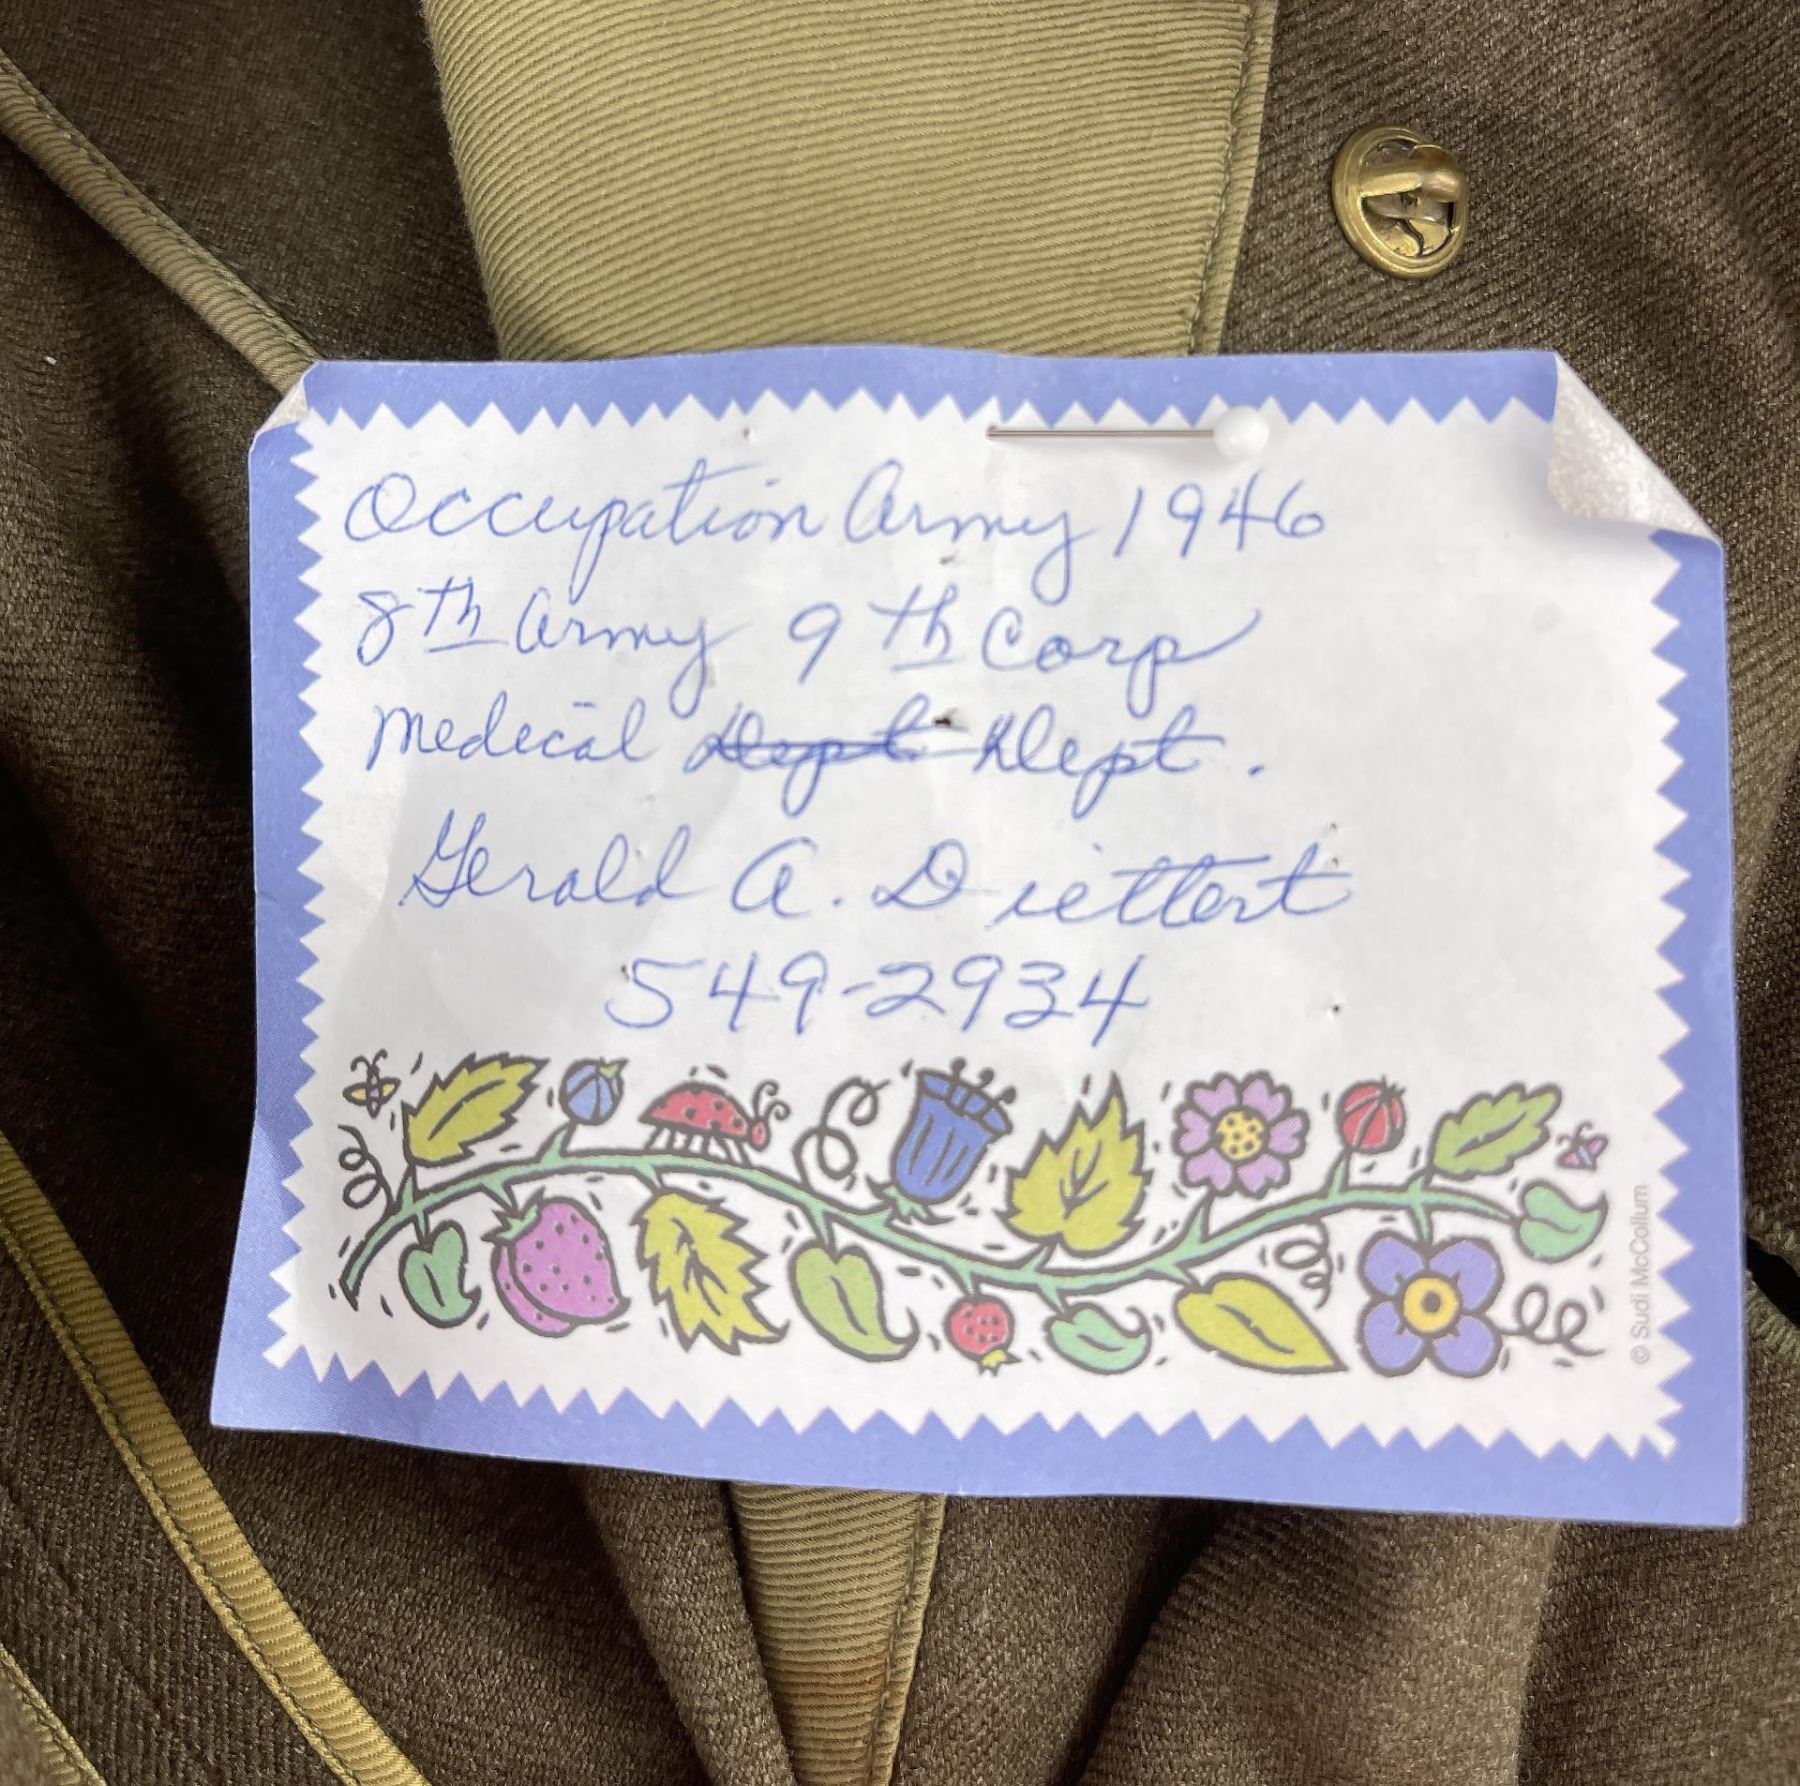 Occupation Army 1946
8th Army 9th Corp
Medical Dept Dept.
Gerald A. Diettert
549-2934
© Sudi McCollum